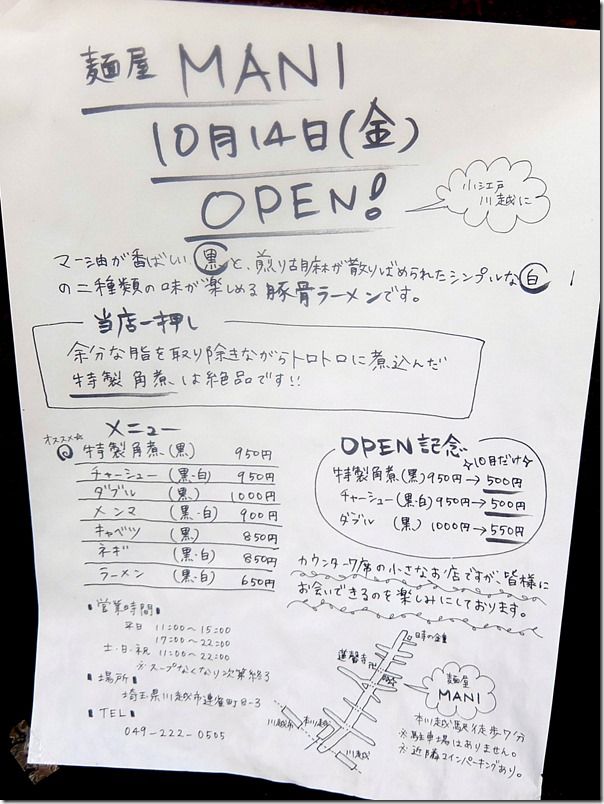 麺屋 MANI
10月14日(金)
OPEN!
小江戸
川越に
マー油が香ばしい 黒 と、煎り胡麻が散りばめられたシンプルな 白
の二種類の味が楽しめる 豚骨ラーメンです。
当店一押し
余分な脂を取り除きながらトロトロに煮込んだ
特製 角煮 は絶品です!!
メニュー
オススメ☆
特製角煮 (黒) 950円
チャーシュー (黒・白) 950円
ダブル (黒) 1000円
メンマ (黒・白) 900円
キャベツ (黒) 850円
ネギ (黒・白) 850円
ラーメン (黒・白) 650円
OPEN記念
☆10月だけ☆
特製角煮 (黒) 950円→500円
チャーシュー (黒・白) 950円→500円
ダブル (黒) 1000円→550円
カウンター7席の小さなお店ですが、皆様に
お会いできるのを楽しみにしております。
■営業時間■
平日 11:00〜15:00
17:00〜22:00
土・日・祝 11:00〜22:00
※スープなくなり次第終了
■場所■
埼玉県川越市連雀町8-3
■TEL■
049-222-0505
時の鐘
蓮馨寺
川越市
本川越
川越
麺屋
MANI
本川越駅徒歩7分
※駐車場はありません。
※近隣コインパーキングあり。